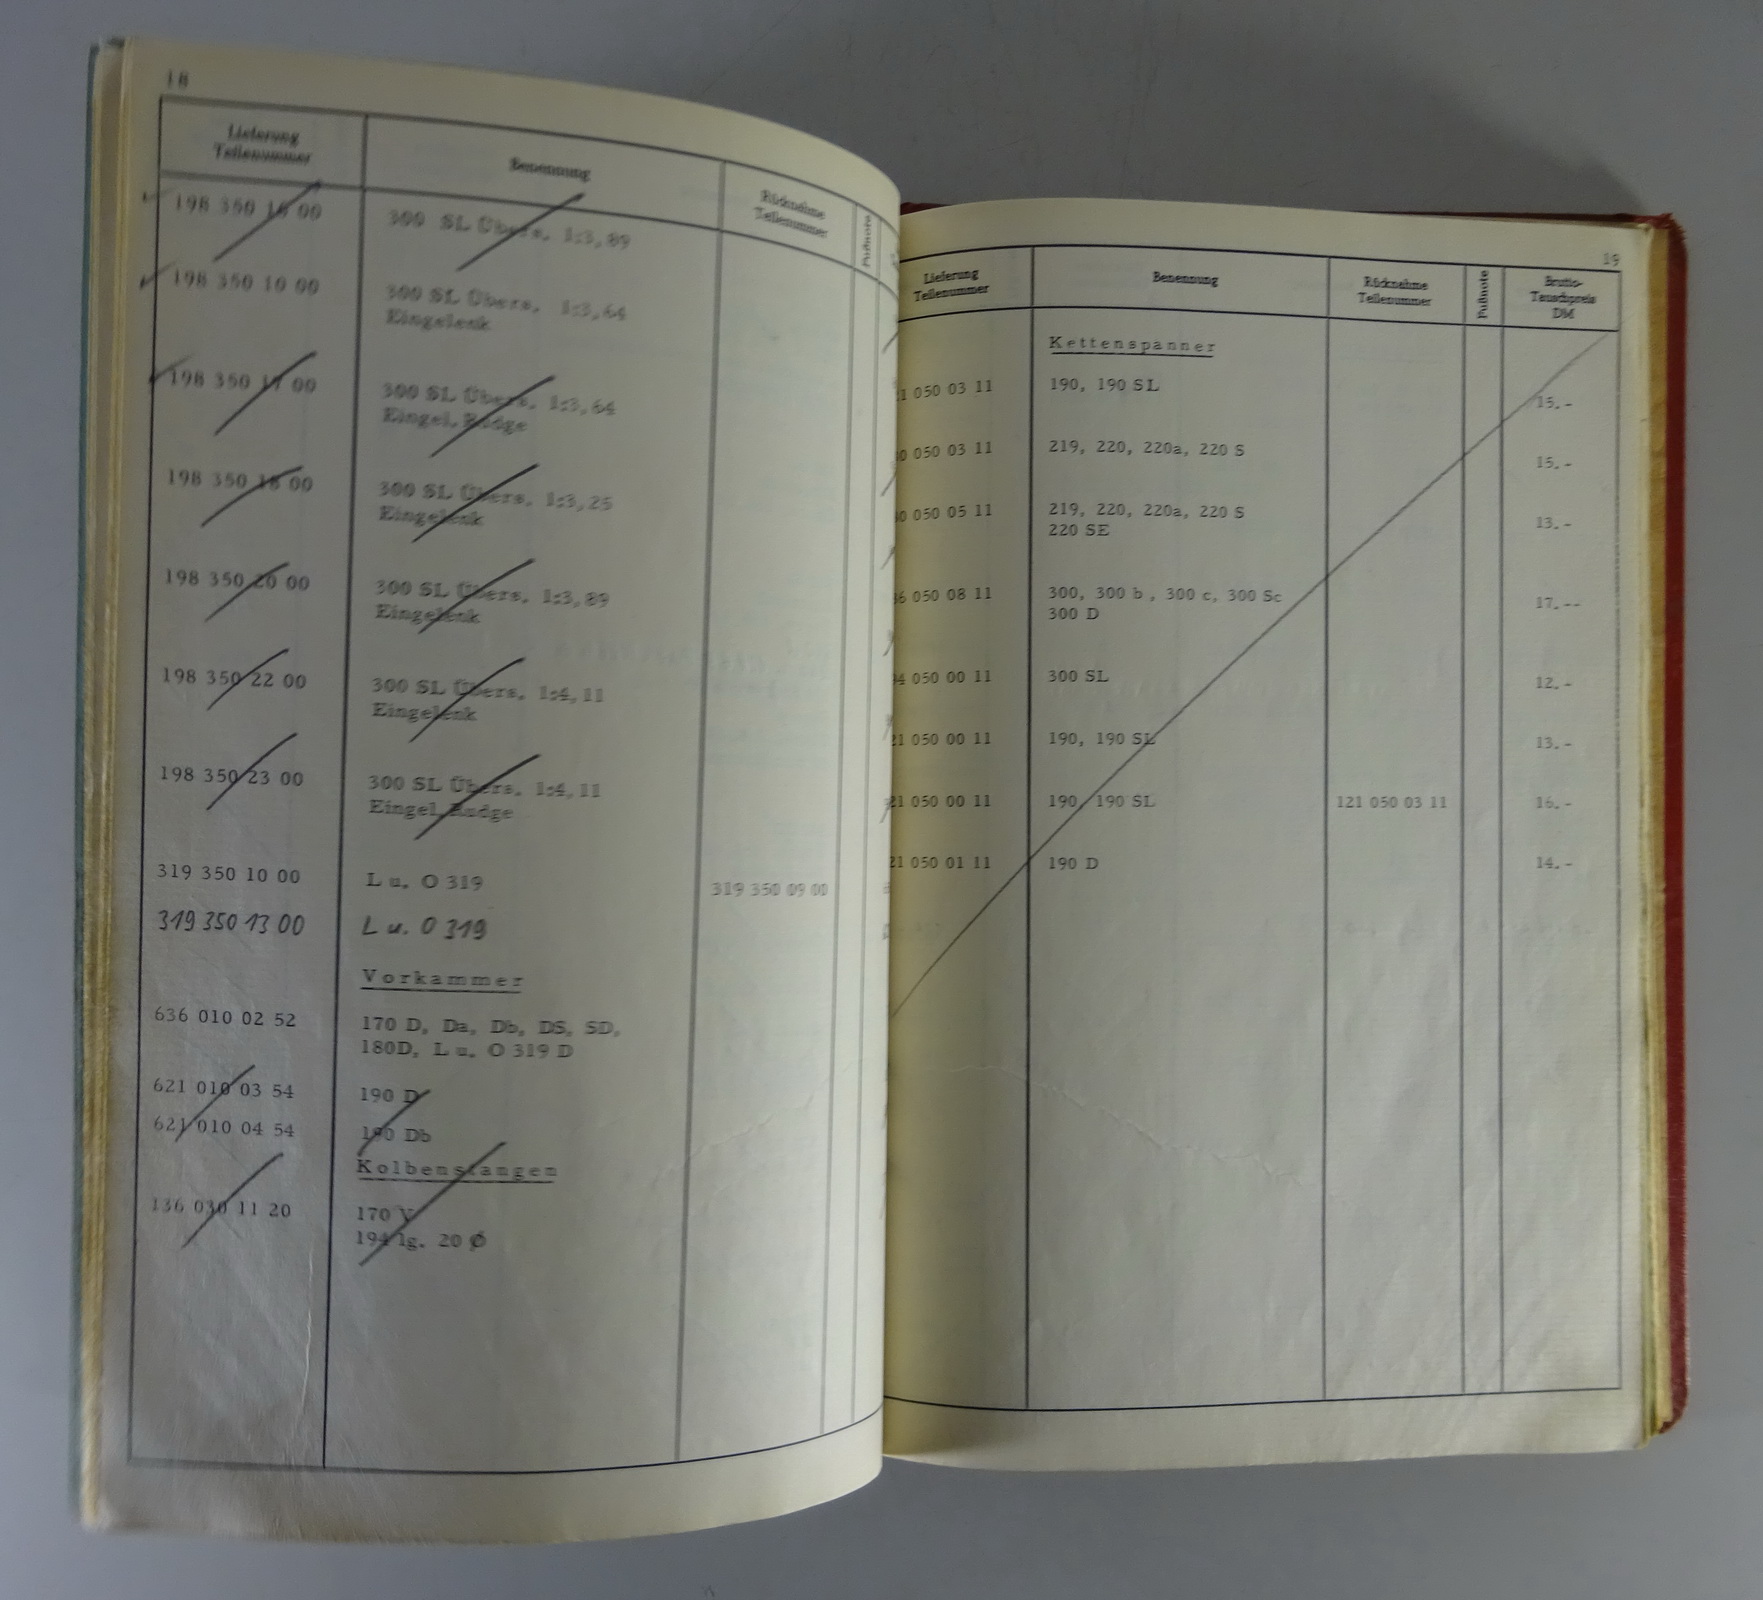 18
Lieferung
Teilenummer
Benennung
Rücknahme
Teilenummer
Fußnote
198 350 16 00 300 SL Übers. 1:3,89
198 350 10 00 300 SL Übers. 1:3,64
Eingelenk
198 350 17 00 300 SL Übers. 1:3,64
Eingel. Rudge
198 350 18 00 300 SL Übers. 1:3,25
Eingelenk
198 350 20 00 300 SL Übers. 1:3,89
Eingelenk
198 350 22 00 300 SL Übers. 1:4,11
Eingelenk
198 350 23 00 300 SL Übers. 1:4,11
Eingel. Rudge
319 350 10 00 L u. O 319 319 350 09 00
319 350 13 00 L u. O 319
Vorkammer
636 010 02 52 170 D, Da, Db, DS, SD,
180D, L u. O 319 D
621 010 03 54 190 D
621 010 04 54 190 Db
Kolbenstangen
136 030 11 20 170 V
194 lg. 20 Ø
19
Lieferung
Teilenummer
Benennung
Rücknahme
Teilenummer
Fußnote
Brutto-
Tauschpreis
DM
Kettenspanner
050 03 11 190, 190 SL 15.-
050 03 11 219, 220, 220a, 220 S 15.-
050 05 11 219, 220, 220a, 220 S 13.-
220 SE
050 08 11 300, 300 b , 300 c, 300 Sc 17.--
300 D
050 00 11 300 SL 12.-
21 050 00 11 190, 190 SL 13.-
21 050 00 11 190, 190 SL 121 050 03 11 16.-
21 050 01 11 190 D 14.-